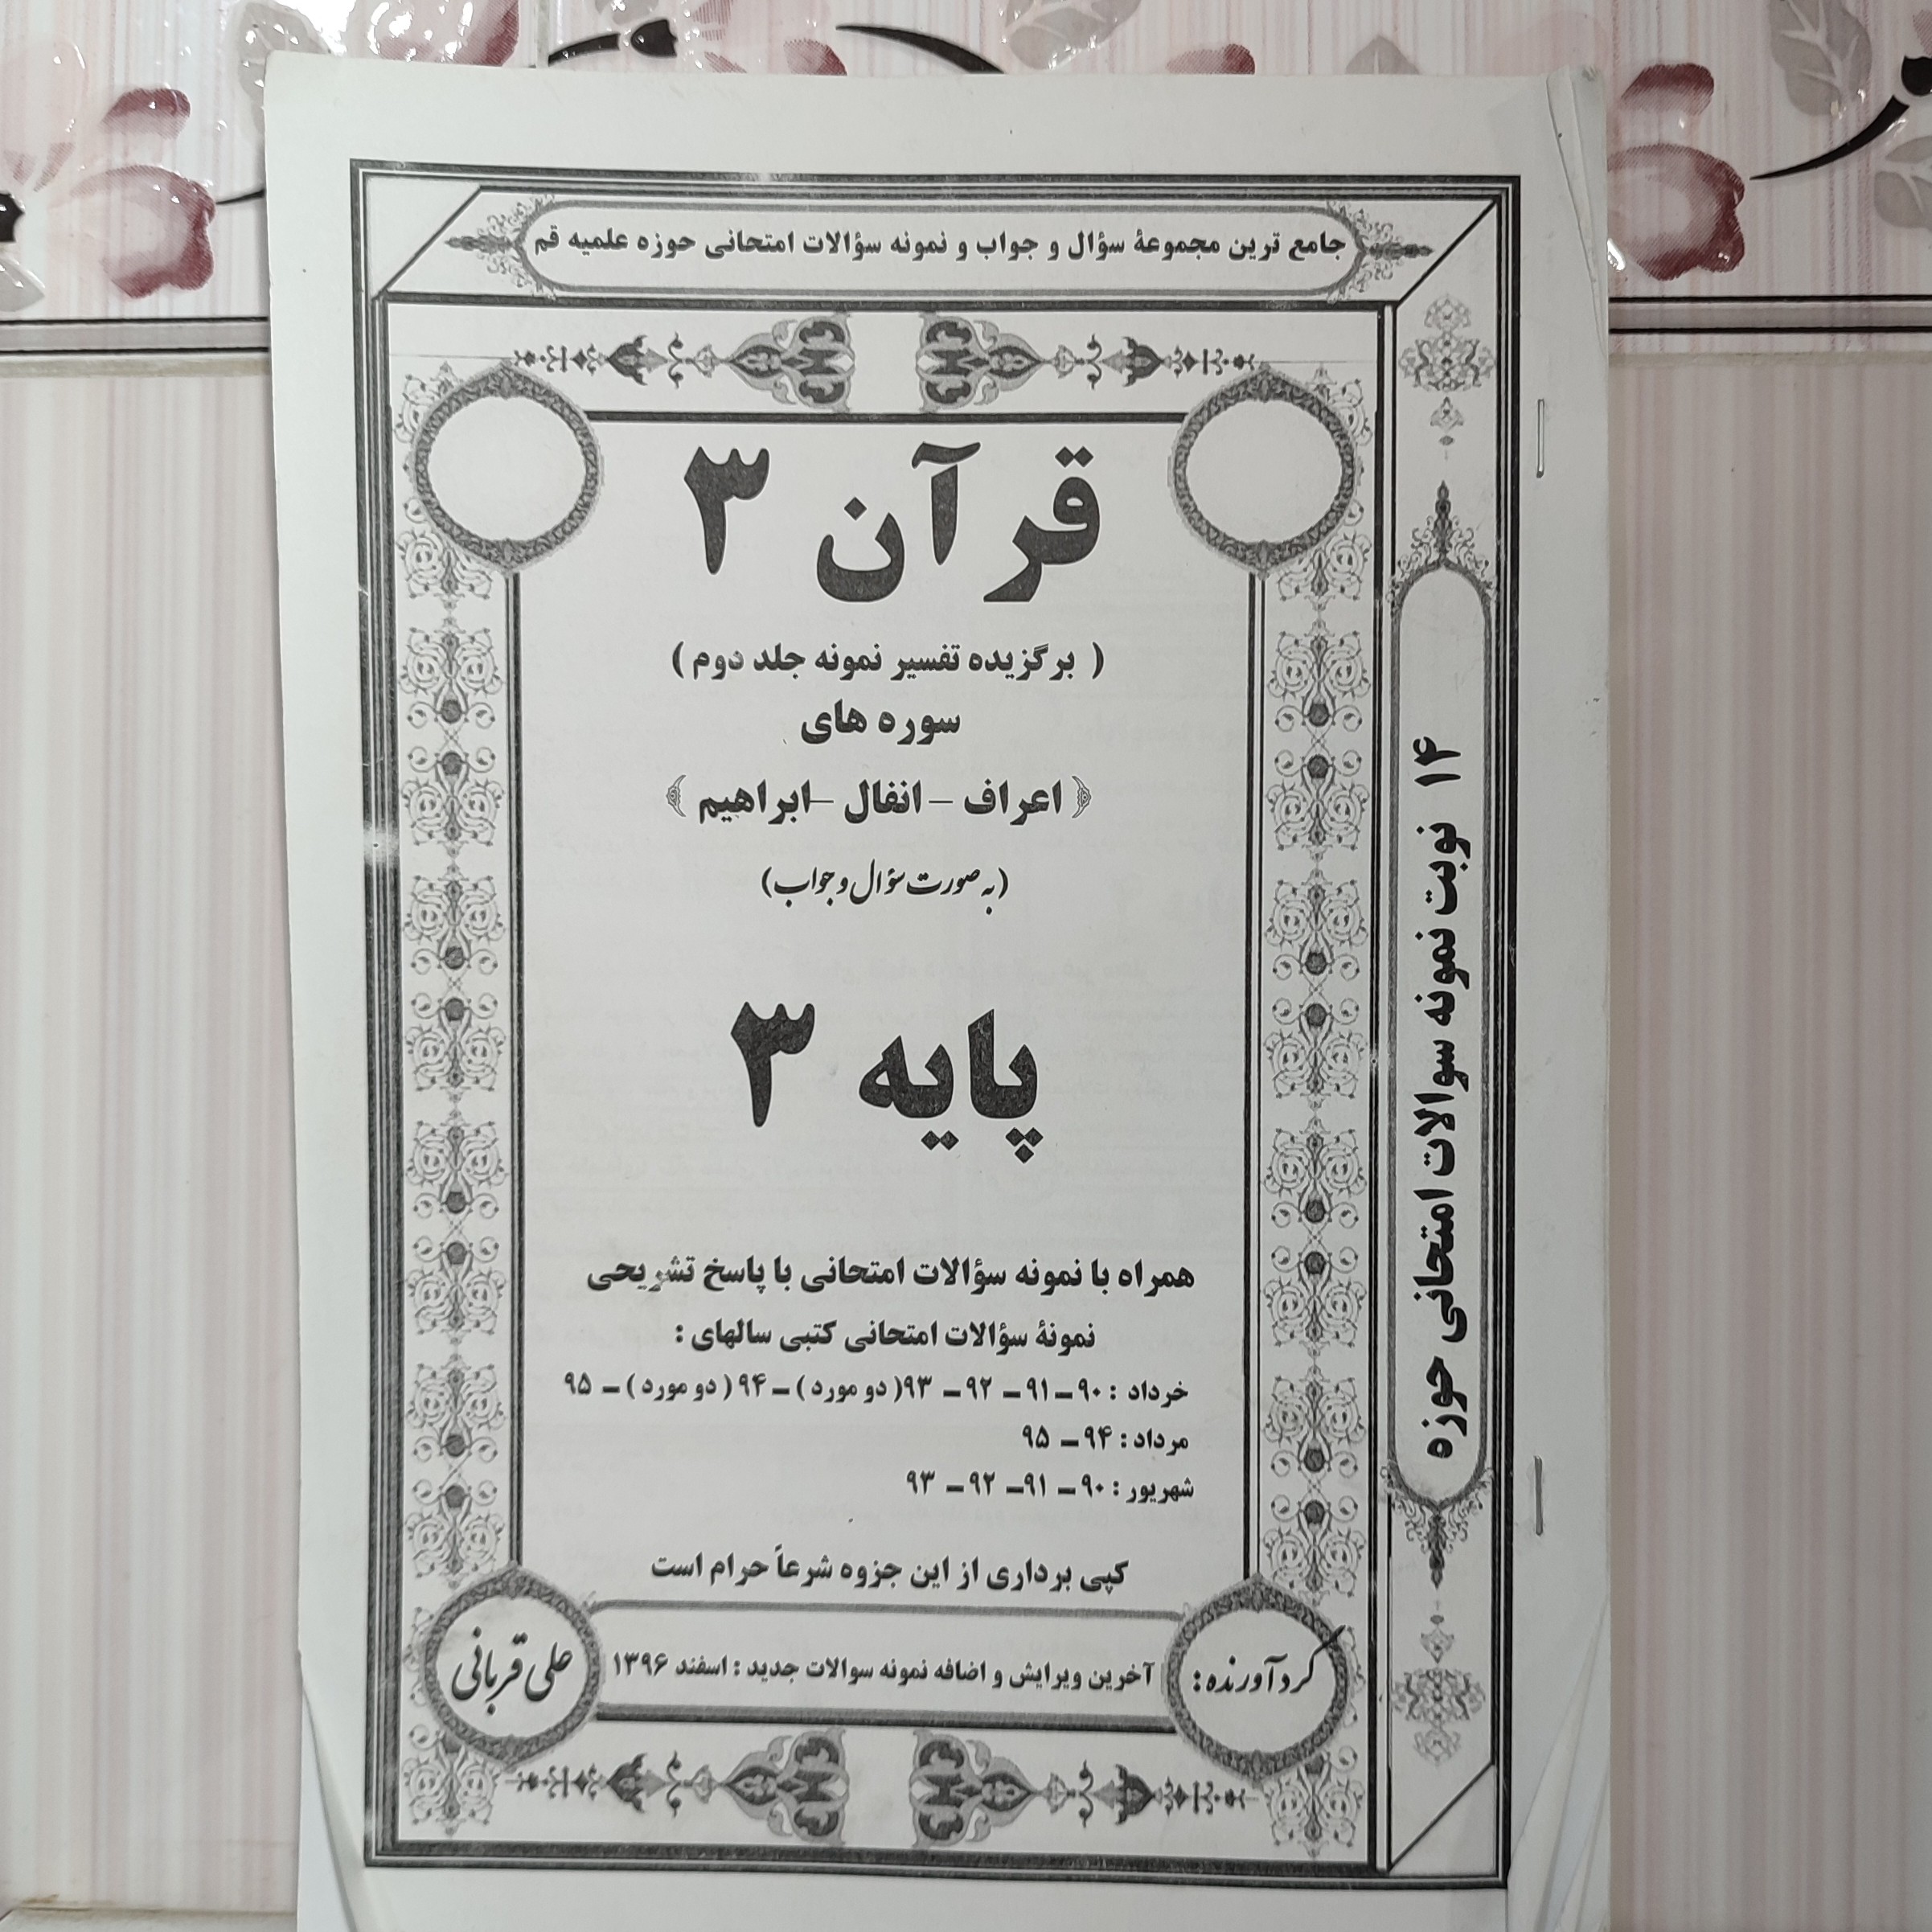 جامع ترین مجموعۀ سؤال و جواب و نمونه سؤالات امتحانی حوزه علمیه قم
قرآن ۳
( برگزیده تفسیر نمونه جلد دوم )
سوره های
﴿ اعراف – انفال – ابراهیم ﴾
(به صورت سؤال و جواب)
پایه ۳
همراه با نمونه سؤالات امتحانی با پاسخ تشریحی
نمونۀ سؤالات امتحانی کتبی سالهای :
خرداد : ۹۰ – ۹۱ – ۹۲ – ۹۳ ( دو مورد ) – ۹۴ ( دو مورد ) – ۹۵
مرداد : ۹۴ – ۹۵
شهریور : ۹۰ – ۹۱ – ۹۲ – ۹۳
کپی برداری از این جزوه شرعاً حرام است
گردآورنده :
آخرین ویرایش و اضافه نمونه سوالات جدید : اسفند ۱۳۹۶
علی قربانی
۱۴ نوبت نمونه سوالات امتحانی حوزه